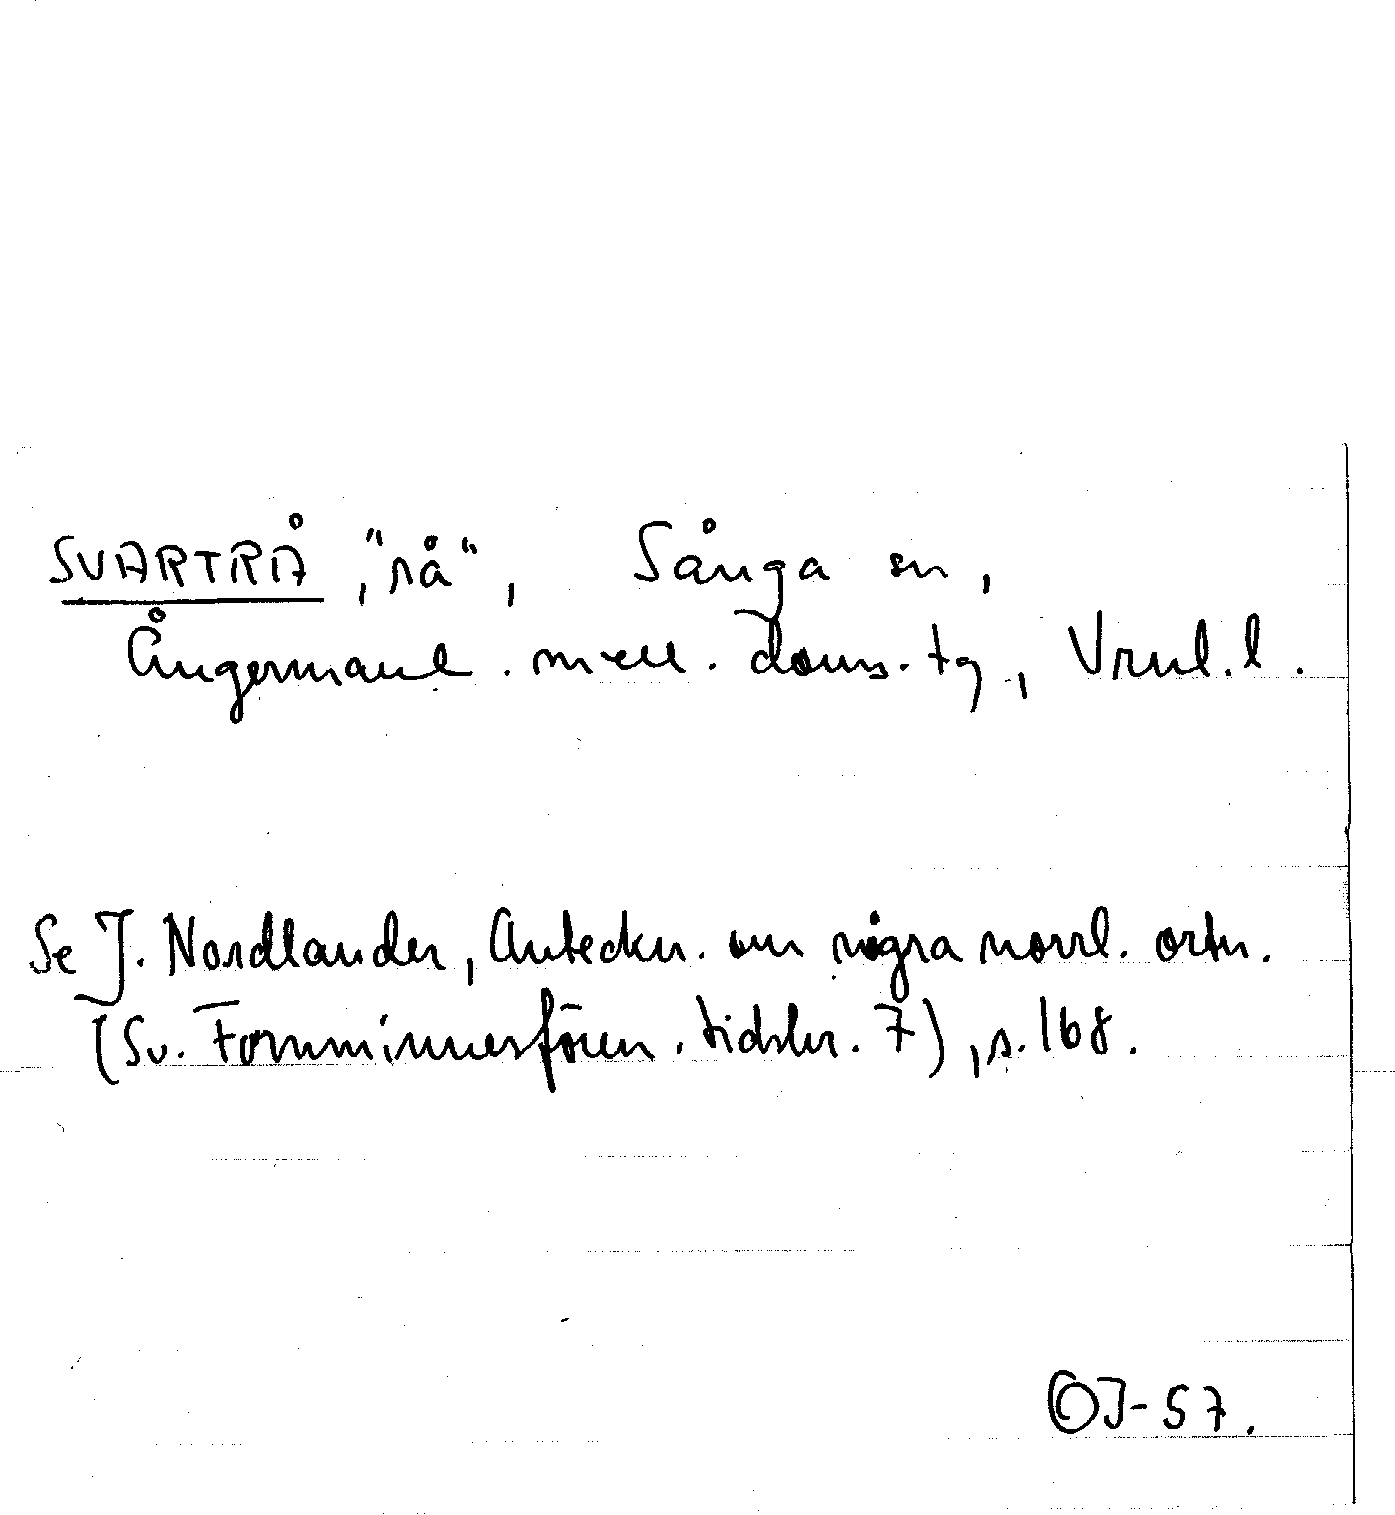 SVARTRÅ, "rå", Sånga sn,
Ångermanl. mell. doms. tg, Vrnl. l.
Se J. Nordlander, Anteckn. om några norrl. ortn.
(Sv. Fornminnesfören. tidskr. 7), s. 168.
OJ-57.